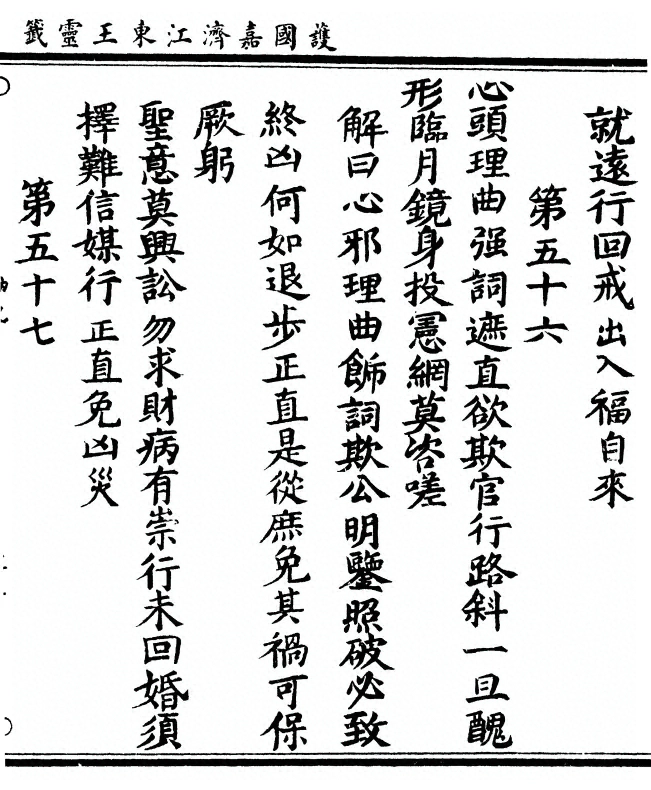 護國嘉濟江東王靈籤
就遠行回戒出入福自來
第五十六
心頭理曲强詞遮直欲欺官行路斜一旦醜
形臨月鏡身投憲網莫咨嗟
解曰心邪理曲飾詞欺公明鑒照破必致
終凶何如退步正直是從庶免其禍可保
厥躬
聖意莫興訟勿求財病有祟行未回婚須
擇難信媒行正直免凶災
第五十七